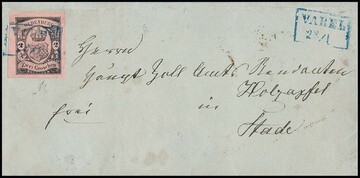 OLDENBURG
Drei Groschen
VAREL
28/1
Herrn
Haupt Zoll Amts Rendanten
Holzapfel
frei
in
Stade